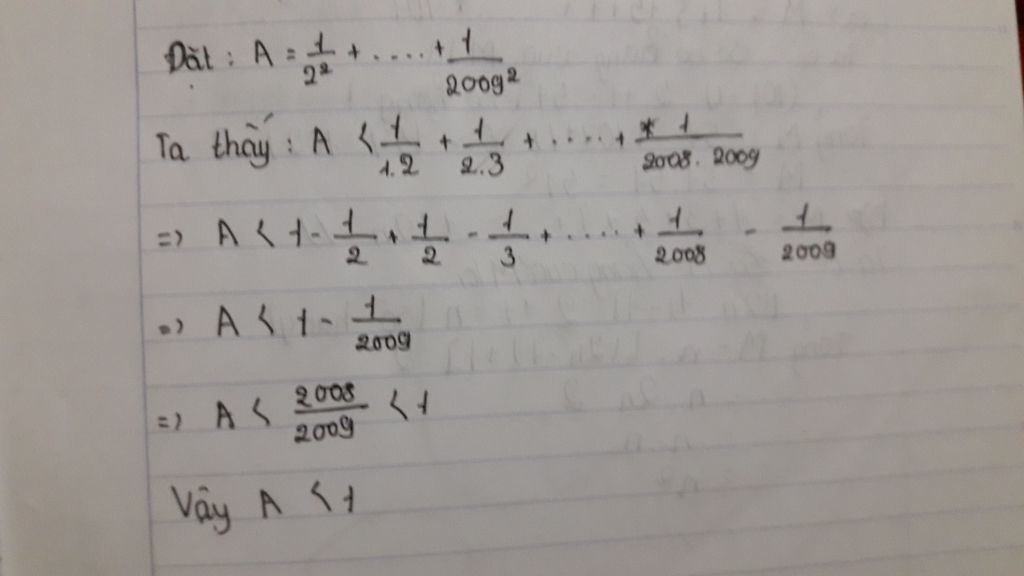 Đặt : A = 1/2² + ..... + 1/2009²
Ta thấy : A < 1/1.2 + 1/2.3 + ..... + 1/2008.2009
=> A < 1 - 1/2 + 1/2 - 1/3 + ..... + 1/2008 - 1/2009
=> A < 1 - 1/2009
=> A < 2008/2009 < 1
Vậy A < 1